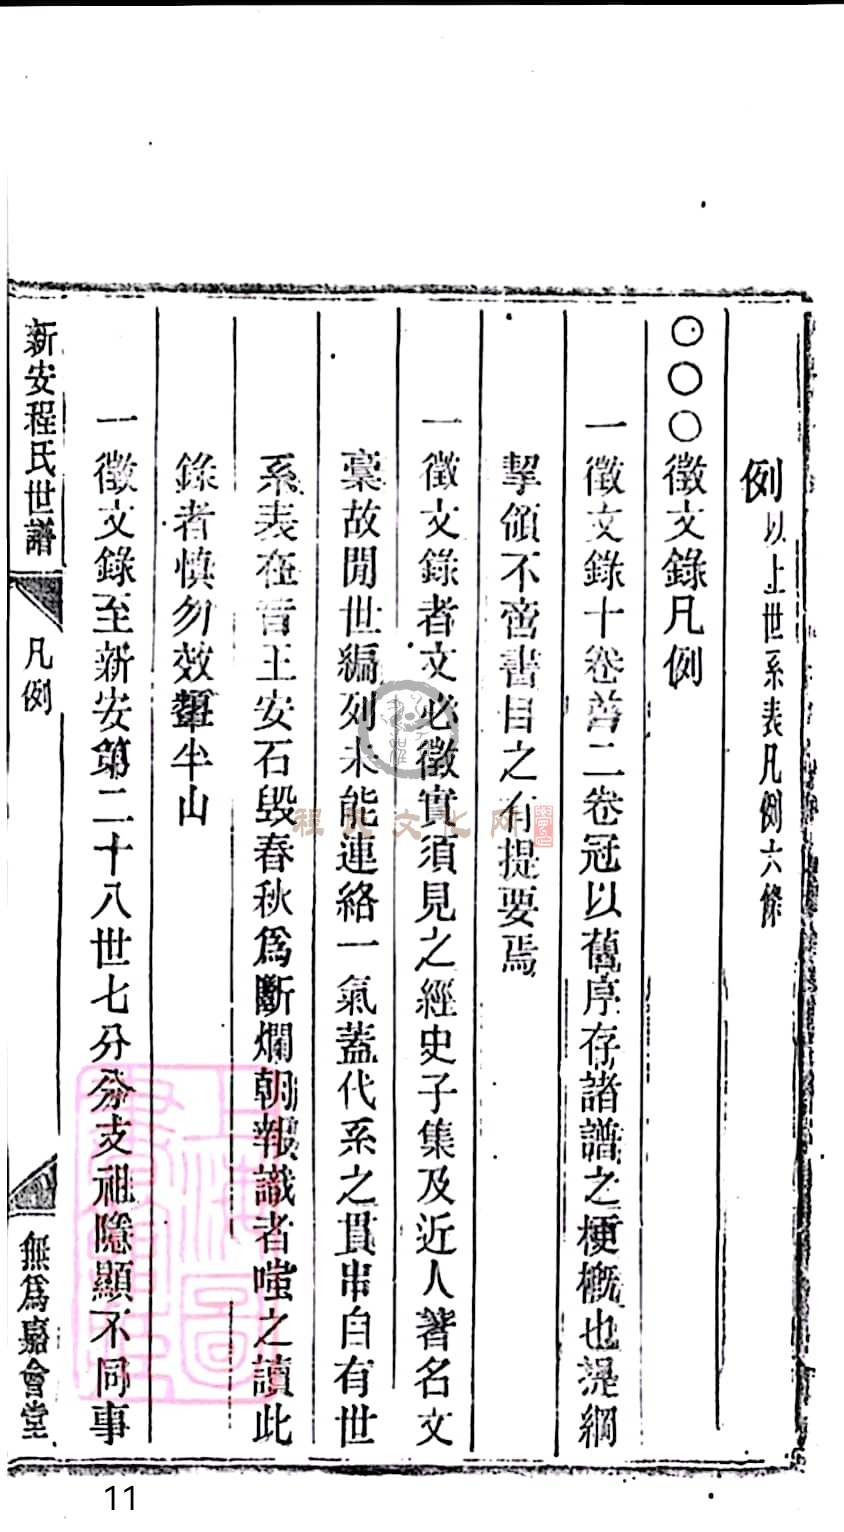 例以上世系表凡例六條
〇〇〇徵文錄凡例
一徵文錄十卷首二卷冠以舊序存諸譜之梗概也提綱
挈領不啻書目之有提要焉
一徵文錄者文必徵實須見之經史子集及近人著名文
稾故閒世編列未能連絡一氣蓋代系之貫串自有世
系表在昔王安石毀春秋爲斷爛朝報識者嗤之讀此
錄者慎勿效顰半山
一徵文錄至新安第二十八世七分分支祖隱顯不同事
新安程氏世譜
凡例
無爲嘉會堂
程氏文化网
上海圖
11